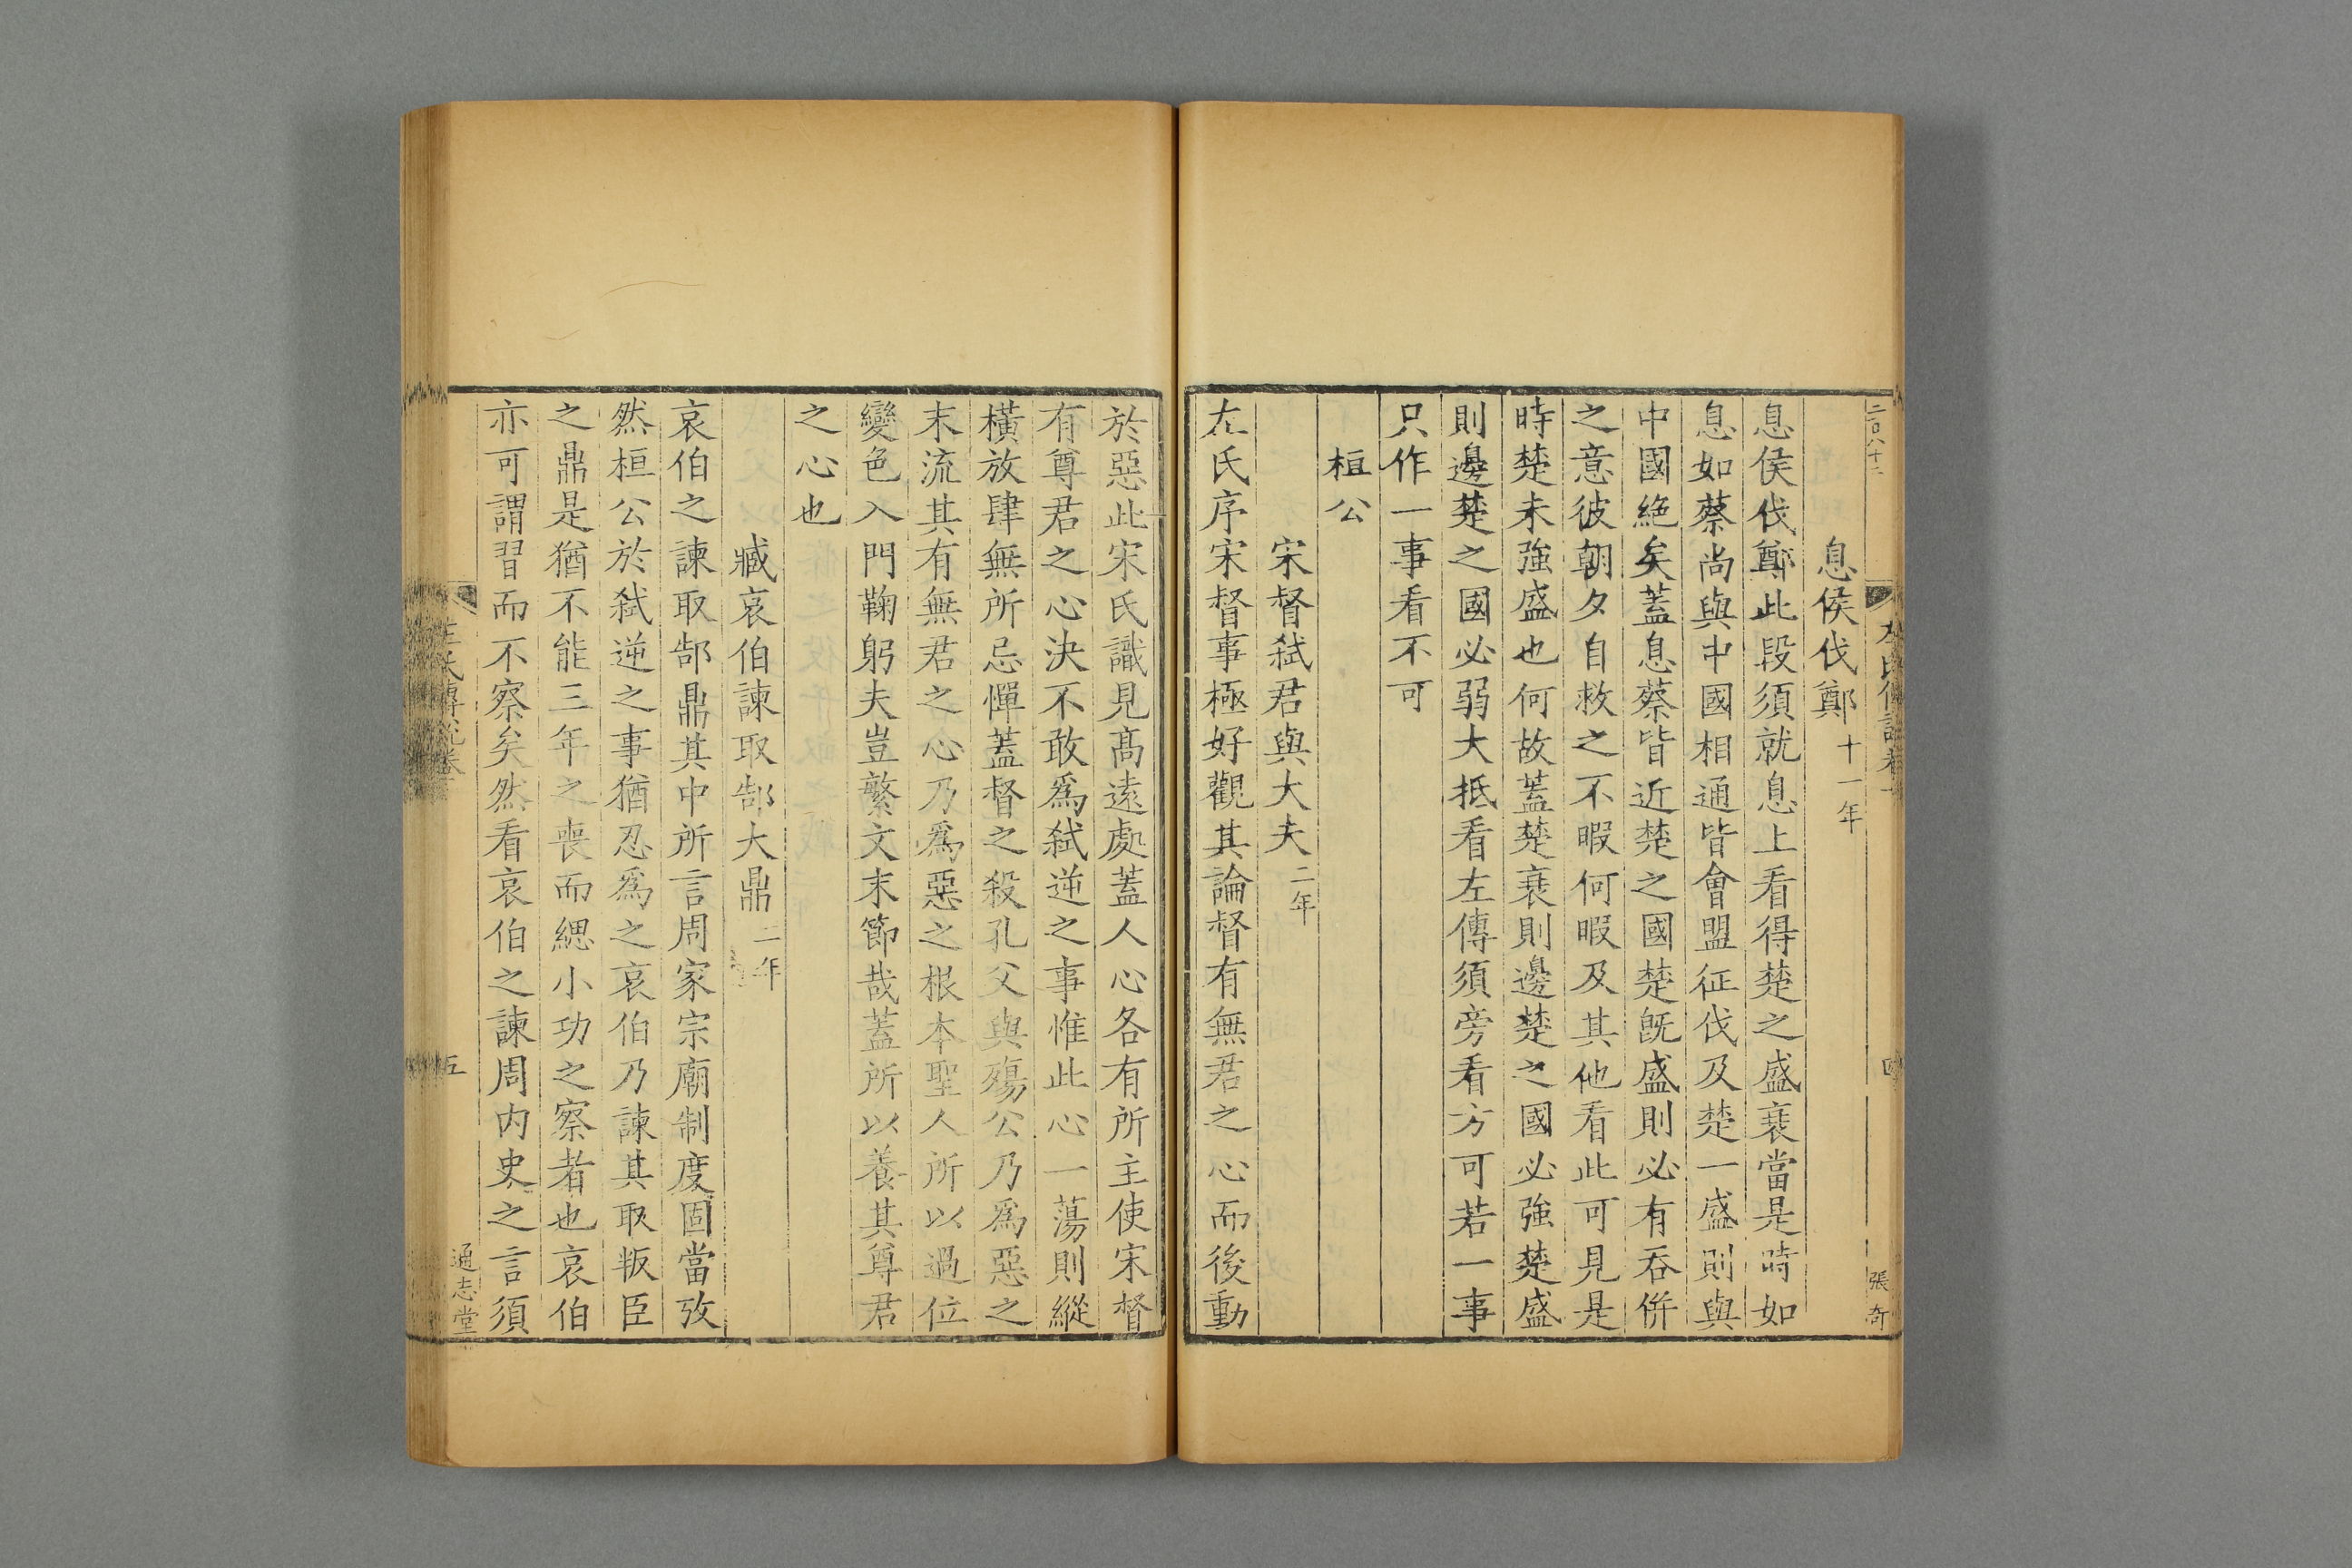 二百八十二
左氏傳說卷一
四
張奇
息侯伐鄭十一年
息侯伐鄭此段須就息上看得楚之盛衰當是時如
息如蔡尚與中國相通皆會盟征伐及楚一盛則與
中國絕矣蓋息蔡皆近楚之國楚旣盛則必有吞併
之意彼朝夕自救之不暇何暇及其他看此可見是
時楚未強盛也何故蓋楚衰則邊楚之國必強楚盛
則邊楚之國必弱大抵看左傳須旁看方可若一事
只作一事看不可
桓公
宋督弒君與大夫二年
左氏序宋督事極好觀其論督有無君之心而後動
於惡此宋氏識見高遠處蓋人心各有所主使宋督
有尊君之心決不敢爲弒逆之事惟此心一蕩則縱
橫放肆無所忌憚蓋督之殺孔父與殤公乃爲惡之
末流其有無君之心乃爲惡之根本聖人所以過位
變色入門鞠躬夫豈繁文末節哉蓋所以養其尊君
之心也
臧哀伯諫取郜大鼎二年
哀伯之諫取郜鼎其中所言周家宗廟制度固當攷
然桓公於弒逆之事猶忍爲之哀伯乃諫其取叛臣
之鼎是猶不能三年之喪而緦小功之察者也哀伯
亦可謂習而不察矣然看哀伯之諫周內史之言須
左氏傳說卷一
五
通志堂